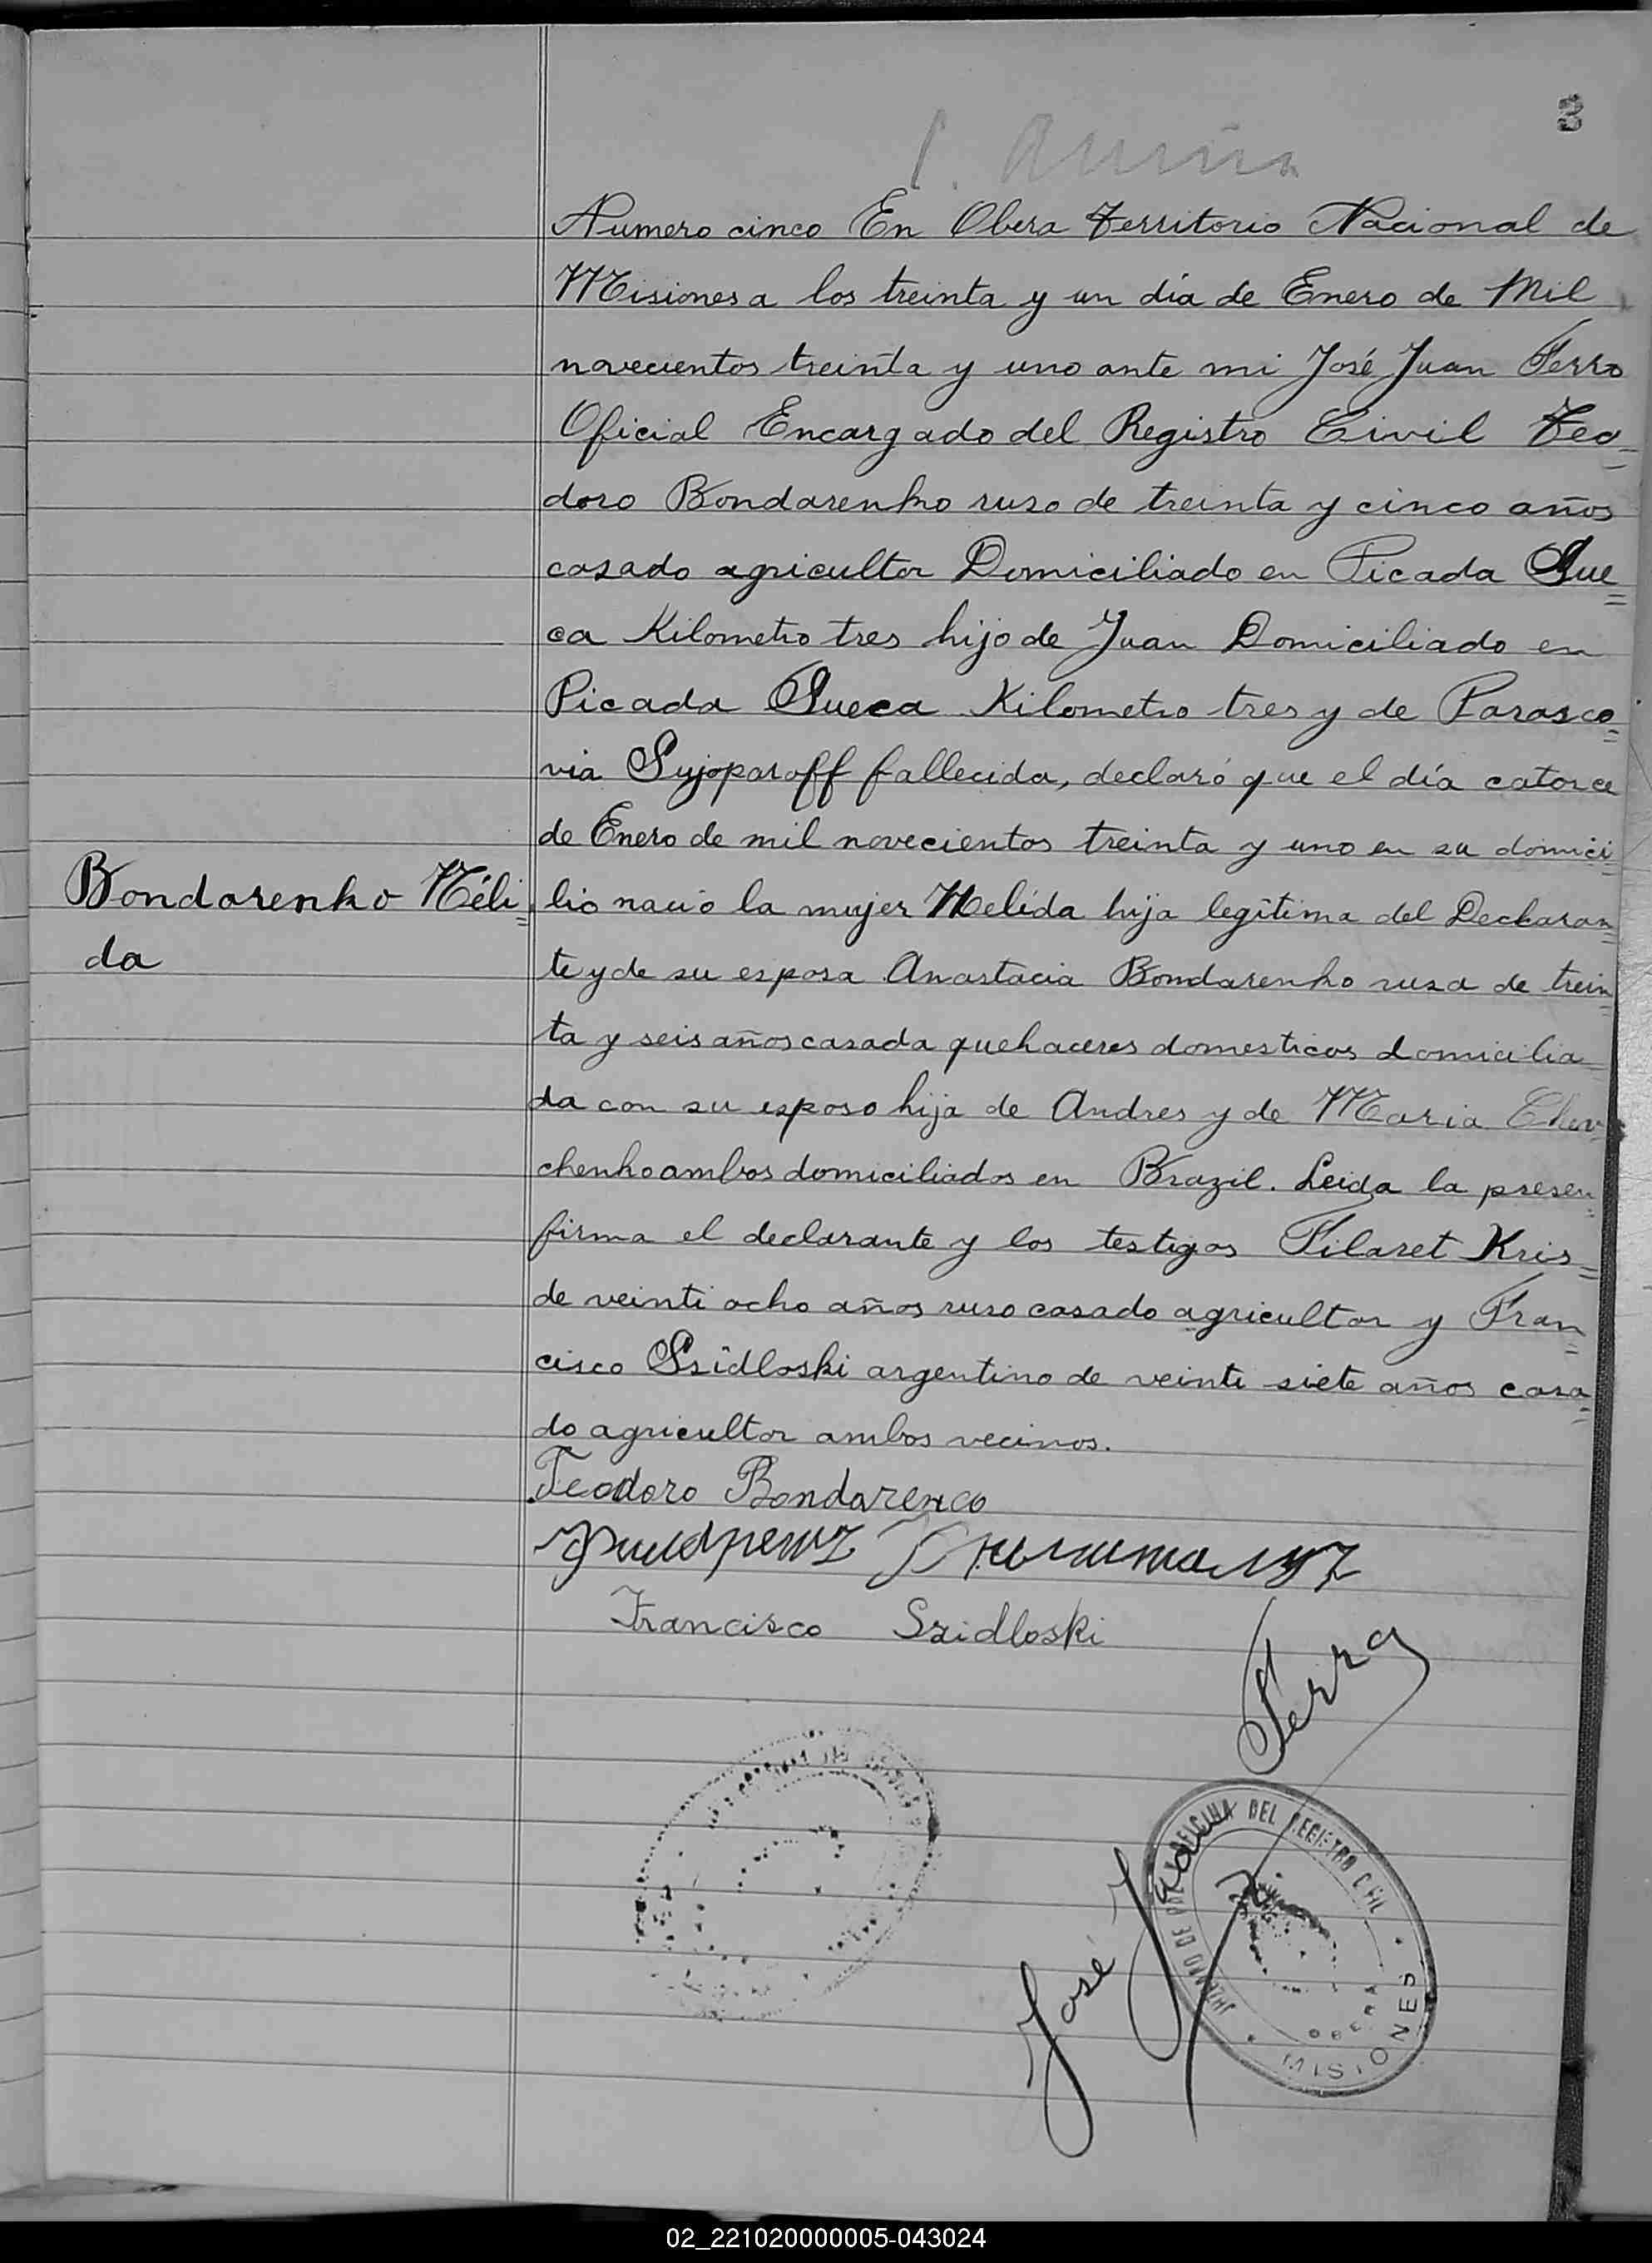 3
Numero cinco En Obera Territorio Nacional de
Misiones a los treinta y un día de Enero de Mil
novecientos treinta y uno ante mi José Juan Ferro
Oficial Encargado del Registro Civil Teo-
doro Bondarenko ruso de treinta y cinco años
casado agricultor Domiciliado en Picada Sue=
ca Kilometro tres hijo de Juan Domiciliado en
Picada Sueca Kilometro tres y de Parasco=
via Sujoparoff fallecida, declaró que el día catorce
de Enero de mil novecientos treinta y uno en su domici=
Bondarenko Néli=
da
lio nació la mujer Nelida hija legítima del Declaran=
te y de su esposa Anastacia Bondarenko rusa de trein=
ta y seis años casada quehaceres domesticos domicilia=
da con su esposo hija de Andres y de Maria Chev-
chenko ambos domiciliados en Brazil. Leida la presen=
firma el declarante y los testigos Filaret Kris=
de veinti ocho años ruso casado agricultor y Fran=
cisco Szidloski argentino de veinti siete años casa=
do agricultor ambos vecinos.
Teodoro Bondarenco
Francisco Szidloski
José Juan Ferro
OFICINA DEL REGISTRO CIVIL
OBERA
MISIONES
02_221020000005-043024